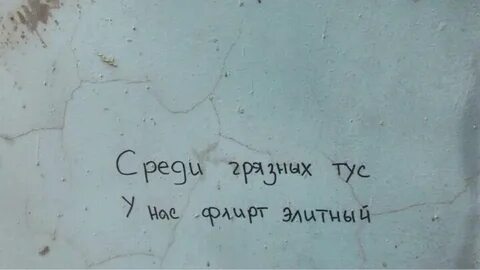 Среди грязных тус
У нас флирт элитный